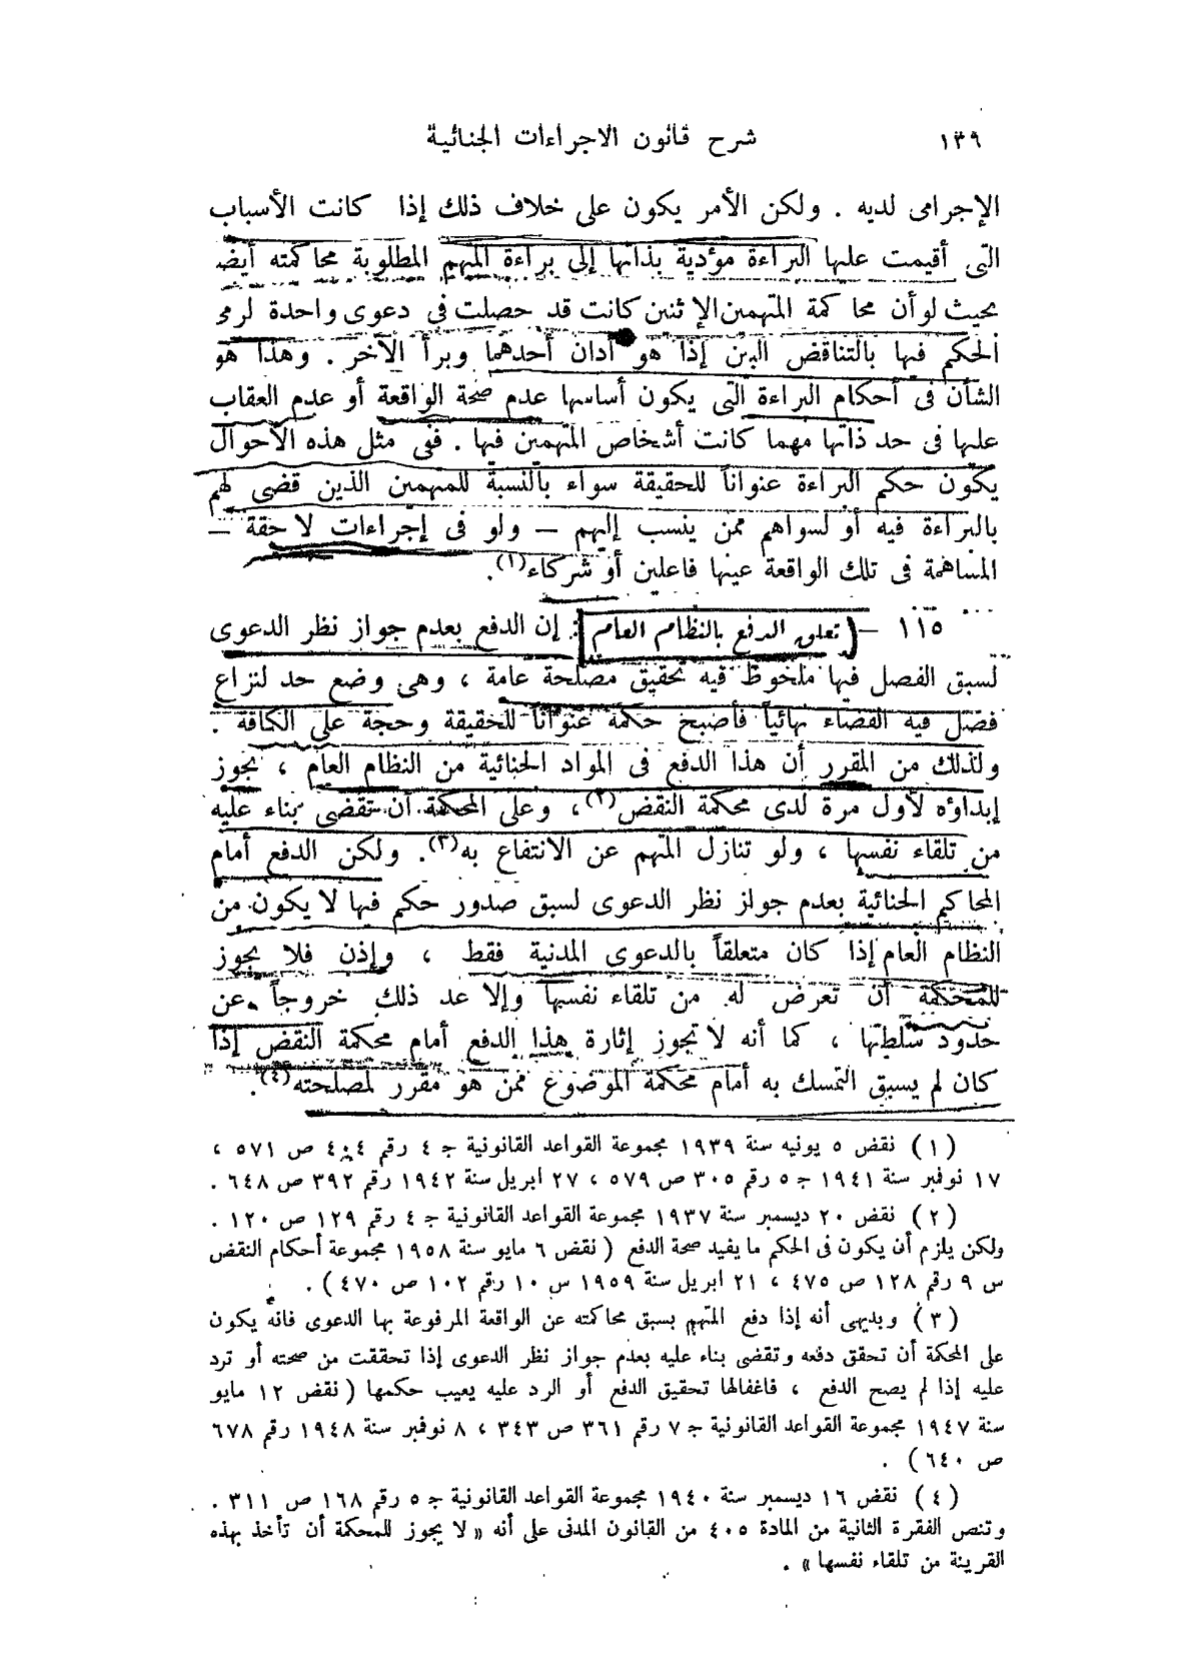 ١٣٩ شرح قانون الاجراءات الجنائية
الإجرامى لديه . ولكن الأمر يكون على خلاف ذلك إذا كانت الأسباب
التى أقيمت عليها البراءة مؤدية بذاتها إلى براءة المتهم المطلوبة محاكمته أيضـ
بحيث لو أن محاكمة المتهمين الإثنين كانت قد حصلت فى دعوى واحدة لرمى
الحكم فيها بالتناقض البين إذا هو أدان أحدهما وبرأ الآخر . وهذا هو
الشأن فى أحكام البراءة التى يكون أساسها عدم صحة الواقعة أو عدم العقاب
عليها فى حد ذاتها مهما كانت أشخاص المتهمين فيها . ففى مثل هذه الأحوال
يكون حكم البراءة عنواناً للحقيقة سواء بالنسبة للمتهمين الذين قضى لهم
بالبراءة فيه أو لسواهم ممن ينسب إليهم – ولو فى إجراءات لاحقة –
المساهمة فى تلك الواقعة عينها فاعلين أو شركاء(١).
١١٥ – ( تعلق الدفع بالنظام العام ) : إن الدفع بعدم جواز نظر الدعوى
لسبق الفصل فيها ملحوظ فيه تحقيق مصلحة عامة ، وهى وضع حد لنزاع
فصل فيه القضاء نهائياً فأصبح حكمه عنواناً للحقيقة وحجة على الكافة .
ولذلك من المقرر أن هذا الدفع فى المواد الجنائية من النظام العام ، يجوز
إبداؤه لأول مرة لدى محكمة النقض(٢)، وعلى المحكمة أن تقضى بناء عليه
من تلقاء نفسها ، ولو تنازل المتهم عن الانتفاع به(٣). ولكن الدفع أمام
المحاكم الجنائية بعدم جواز نظر الدعوى لسبق صدور حكم فيها لا يكون من
النظام العام إذا كان متعلقاً بالدعوى المدنية فقط ، وإذن فلا يجوز
للمحكمة أن تعرض له من تلقاء نفسها وإلا عد ذلك خروجاً عن
حدود سلطتها ، كما أنه لا تجوز إثارة هذا الدفع أمام محكمة النقض إذا
كان لم يسبق التمسك به أمام محكمة الموضوع ممن هو مقرر لمصلحته(٤).
(١) نقض ٥ يونيه سنة ١٩٣٩ مجموعة القواعد القانونية ج ٤ رقم ٤٠٤ ص ٥٧١ ،
١٧ نوفبر سنة ١٩٤١ ج ٥ رقم ٣٠٥ ص ٥٧٩ ، ٢٧ ابريل سنة ١٩٤٢ رقم ٣٩٢ ص ٦٤٨ .
(٢) نقض ٢٠ ديسمبر سنة ١٩٣٧ مجموعة القواعد القانونية ج ٤ رقم ١٢٩ ص ١٢٠ .
ولكن يلزم أن يكون فى الحكم ما يفيد صحة الدفع ( نقض ٦ مايو سنة ١٩٥٨ مجموعة أحكام النقض
س ٩ رقم ١٢٨ ص ٤٧٥ ، ٢١ ابريل سنة ١٩٥٩ س ١٠ رقم ١٠٢ ص ٤٧٠ ) .
(٣) وبديهى أنه إذا دفع المتهم بسبق محاكمته عن الواقعة المرفوعة بها الدعوى فانه يكون
على المحكمة أن تحقق دفعه وتقضى بناء عليه بعدم جواز نظر الدعوى إذا تحققت من صحته أو ترد
عليه إذا لم يصح الدفع ، فاغفالها تحقيق الدفع أو الرد عليه يعيب حكمها ( نقض ١٢ مايو
سنة ١٩٤٧ مجموعة القواعد القانونية ج ٧ رقم ٣٦١ ص ٣٤٣ ، ٨ نوفبر سنة ١٩٤٨ رقم ٦٧٨
ص ٦٤٠ ) .
(٤) نقض ١٦ ديسمبر سنة ١٩٤٠ مجموعة القواعد القانونية ج ٥ رقم ١٦٨ ص ٣١١ .
وتنص الفقرة الثانية من المادة ٤٠٥ من القانون المدنى على أنه « لا يجوز للمحكمة أن تأخذ بهذه
القرينة من تلقاء نفسها » .